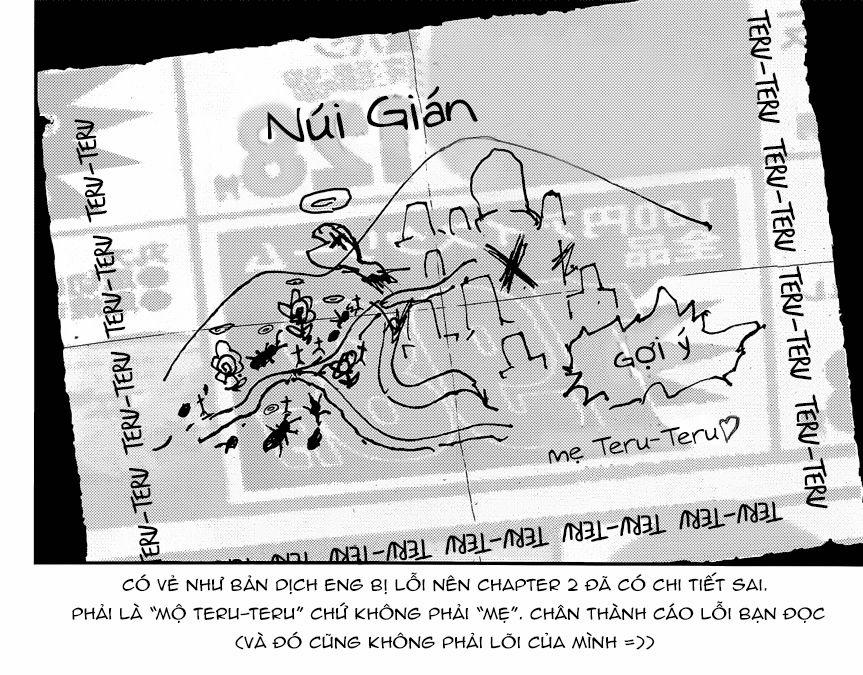 Núi Gián
Gợi ý
mẹ Teru-Teru♡
TERU-TERU TERU-TERU TERU-TERU TERU-TERU
TERU-TERU TERU-TERU TERU-TERU TERU-TERU
TERU-TERU TERU-TERU TERU-TERU TERU-TERU TERU-TERU
128
100円アイスクリーム
全品
CÓ VẺ NHƯ BẢN DỊCH ENG BỊ LỖI NÊN CHAPTER 2 ĐÃ CÓ CHI TIẾT SAI.
PHẢI LÀ "MỘ TERU-TERU" CHỨ KHÔNG PHẢI "MẸ". CHÂN THÀNH CÁO LỖI BẠN ĐỌC
(VÀ ĐÓ CŨNG KHÔNG PHẢI LÕI CỦA MÌNH =))